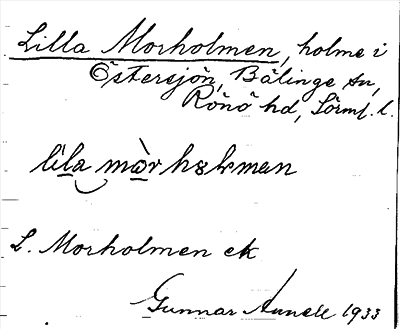 Lilla Morholmen, holme i
Östersjön, Bälinge sn,
Rönö hd, Sörml. l.
lila mòrhol
L. Morholmen ek
Gunnar 1933